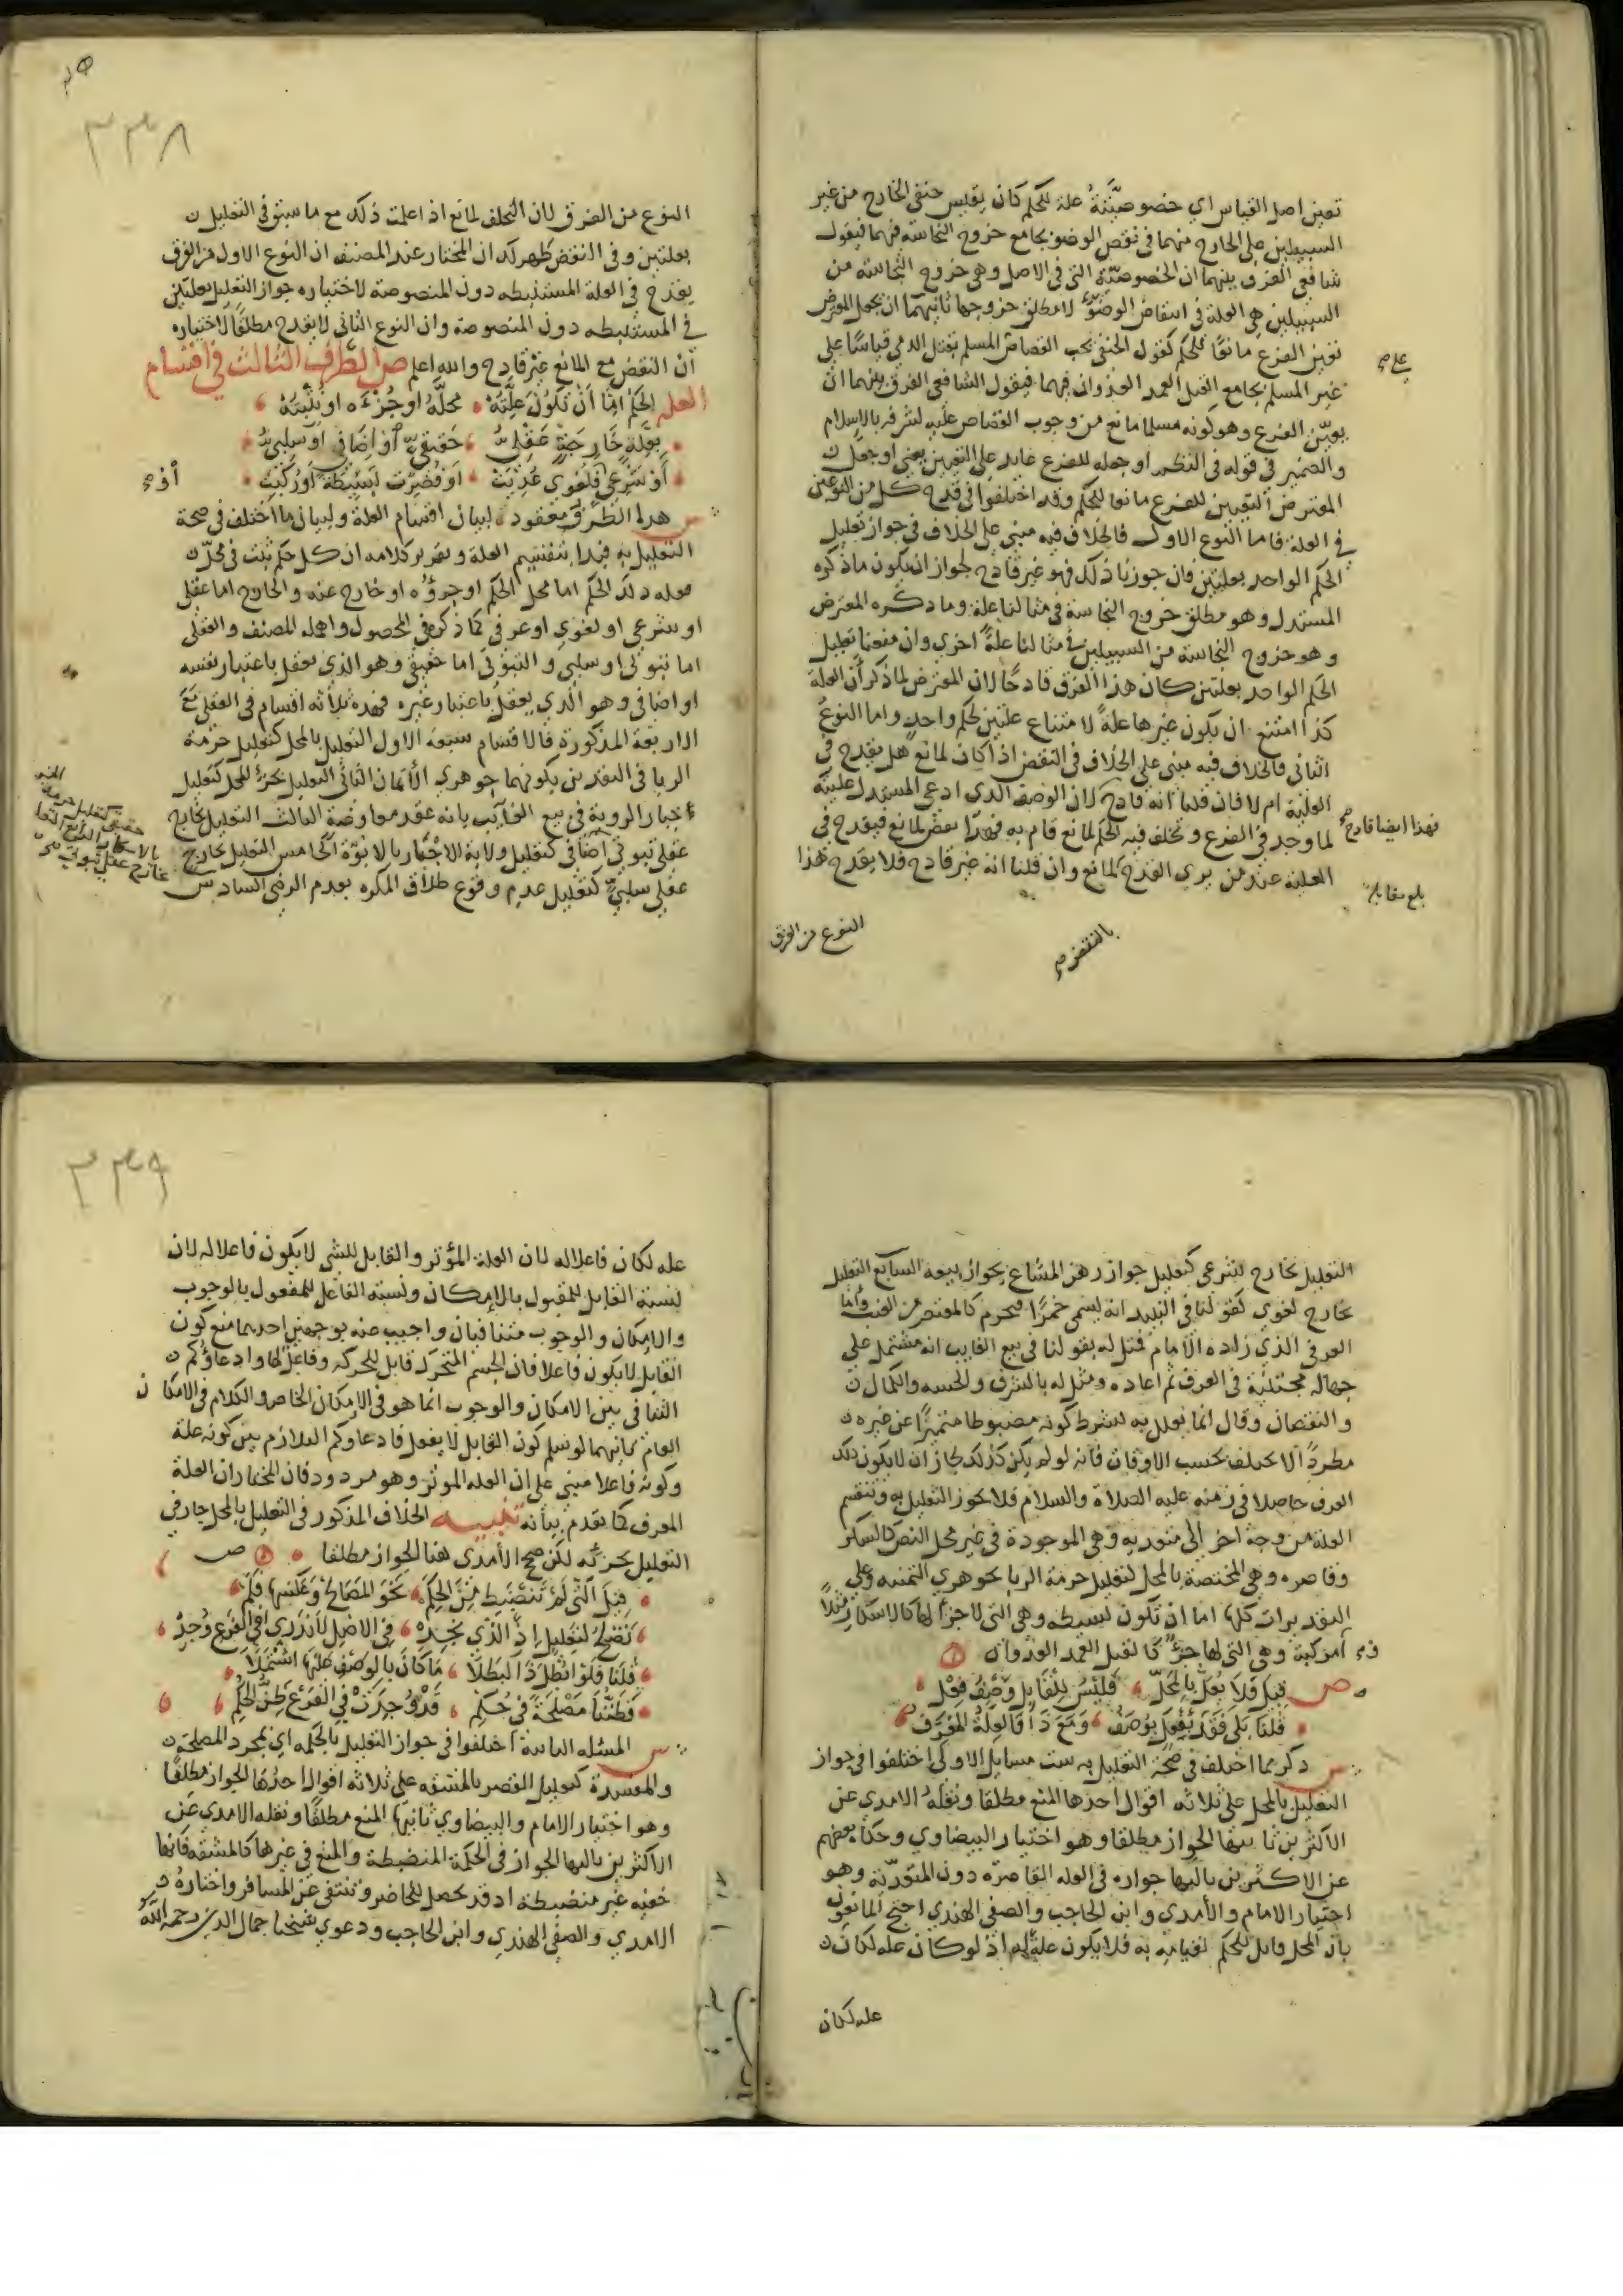 تعين اصل القياس اي خصوصيّته علة للحكم كان يقيس حنفي الخارج من غير
السبيلين على الخارج منهما في نقض الوضو بجامع خروج النجاسة فيهما فيقول
شافعي الفرق بينهما ان الخصوصيّة التي في الاصل وهي خروج النجاسة من
السبيلين هي العلة في انتقاض الوضوء لا مطلق خروجها ثانيهما ان يجعل المعترض
تعين الفرع مانعًا للحكم كقول الحنفي يجب القصاص المسلم بقتل الذمي قياسًا على
على
غير المسلم بجامع القتل العمد العدوان فيهما فيقول الشافعي الفرق بينهما ان
تعيّن الفرع وهو كونه مسلما مانع من وجوب القصاص عليه لشرفه بالاسلام
والضمير في قوله في النظم او جعله للفرع عايد على التعين يعني او جعل
المعترض التعين للفرع مانعا للحكم وقد اختلفوا في قدح كل من النوعين
في العلة فاما النوع الاول فالخلاف فيه مبني على الخلاف في جواز تعليل
الحكم الواحد بعلتين فان جوزنا ذلك فهو غير قادح لجواز ان يكون ما ذكره
المستدل وهو مطلق خروج النجاسة في مثالنا علة وما ذكره المعترض
وهو خروج النجاسة من السبيلين في مثالنا علةً اخرى وان منعنا تعليل
الحكم الواحد بعلتين كان هذا الفرق قادحًا لان المعترض لما ذكر أن العلة
كذا امتنع ان يكون غيرها علةً لامتناع علتين لحكم واحد واما النوع
الثاني فالخلاف فيه مبني على الخلاف في النقض اذا كان لمانع هل يقدح في
العلية ام لا فان قلنا انه قادح لان الوصف الذي ادعى المستدل عليته
فهذا ايضا قادح
لما وجد في الفرع وتخلف فيه الحكم لمانع قام به فهذا نقض لمانع فيقدح في
العلية عند من يرى القدح لمانع وان قلنا انه غير قادح فلا يقدح هذا
بلغ مقابلة
بالنقض
النوع من الفرق
٣٣٨
النوع من الفرق لان التخلف لمانع اذا علمت ذلك مع ما سبق في التعليل
بعلتين وفي النقض ظهر لك ان المختار عند المصنف ان النوع الاول من الفرق
يقدح في العلة المستنبطه دون المنصوصة لاختياره جواز التعليل بعلتين
في المستنبطه دون المنصوصة وان النوع الثاني لا يقدح مطلقًا لاختياره
أن النقض مع المانع غير قادح والله اعلم ص الطرف الثالث في اقسام
العله الحكم امّا أن تكون علّته محلّه او جُزءه او يُثبته
بعلّةٍ خارجةٍ عقليّ حقيقيّ او اضافي او سلبيّ
أو شرعي فلغوي عُديت او قصرت بسيطة اوركبت
أو
س هذا الطرف معقود لبيان اقسام العلة ولبيان ما اختلف في صحة
التعليل به فبدا بتقسيم العلة وتقرير كلامه ان كل حكم ثبت في محلّ
فعلة ذلك الحكم اما محل الحكم او جزؤه او خارج عنه والخارج اما عقلي
او شرعي او لغوي او عرفي كما ذكره في المحصول واهمله المصنف والعقلي
اما ثبوتي او سلبي والثبوتي اما حقيقي وهو الذي يعقل باعتبار نفسه
او اضافي وهو الذي يعقل باعتبار غيره فهذه ثلاثه اقسام في العقلي مع
الاربعة المذكورة فالاقسام سبعة الاول التعليل بالمحل كتعليل حرمة
الربا في النقدين بكونهما جوهري الأثمان الثاني التعليل بجزء المحل كتعليل
خيار الروية في بيع الغايب بانه عقد معاوضة الثالث التعليل بخارج
عقلي ثبوتي اضافي كتعليل ولاية الاجبار بالابوّة الخامس التعليل بخارج
عقلي سلبيّ كتعليل عدم وقوع طلاق المكره بعدم الرضى السادس
حقيقي كتعليل حرمة الخمر
بالاسكار الرابع التعليل
بخارج عقلي ثبوتي
التعليل بخارج شرعي كتعليل جواز رهن المشاع بجواز بيعه السابع التعليل
بخارج لغوي كقولنا في النبيذ انه يسمى خمرًا فيحرم كالمعتصر من العنب وأما
العرفي الذي زاده الامام فمثل له بقولنا في بيع الغايب انه مشتمل على
جهالة مجتنبة في العرف ثم اعاده ومثل له بالشرف والخسه والكمال
والنقصان وقال انما يعلل به بشرط كونه مضبوطا متميزًا عن غيره
مطردًا لا يختلف بحسب الاوقات فانه لو لم يكن كذلك لجاز ان لا يكون ذلك
العرف حاصلا في زمنه عليه الصلاة والسلام فلا يجوز التعليل به وتنقسم
العلة من وجه اخر الى متعديه وهي الموجودة في غير محل النص كالسكر
وقاصره وهي المختصة بالمحل كتعليل حرمة الربا بجوهري الثمنيه وعلى
التقديرات كلها اما ان تكون بسيطه وهي التي لا جزأ لها كالاسكار مثلاً
او مركبة وهي التي لها جزءٌ كالقتل العمد العدوان
ص قيل فلا يعل بالمحلّ فليس للقابل وصف فعل
قلنا بلى فقد يُفعل بوصف ومع ذا فالعلة المعرّف
س ذكر مما اختلف في صحة التعليل به ست مسايل الاولى اختلفوا في جواز
التعليل بالمحل على ثلاثه اقوال احدها المنع مطلقا ونقله الامدي عن
الاكثرين ثانيها الجواز مطلقا وهو اختيار البيضاوي وحكاه بعضهم
عن الاكثرين ثالثها جوازه في العله القاصرة دون المتعديّة وهو
اختيار الامام والأمدي وابن الحاجب والصفي الهندي احتج المانعون
بان المحل قابل للحكم لقيامه به فلا يكون علةً له اذ لو كان عله لكان
عله لكان
٣٣٩
عله لكان فاعلا له لان العلة المؤثر والقابل للشي لا يكون فاعلا له لان
نسبة القابل للمقبول بالإمكان ونسبة الفاعل للمفعول بالوجوب
والامكان والوجوب متنافيان واجيب عنه بوجهين احدهما منع كون
القابل لا يكون فاعلا فان الجسم المتحرك قابل للحركه وفاعل لها وادعاؤكم
التنافي بين الامكان والوجوب انما هو في الامكان الخاص والكلام في الامكان
العام ثانيهما لو سلم كون القابل لا يفعل فادعاوكم التلازم بين كونه علة
وكونه فاعلا مبني على ان العله المؤثر وهو مردود فان المختار ان العلة
المعرف كما تقدم بيانه تنبيه الخلاف المذكور في التعليل بالمحل جار في
التعليل بجزئه لكن صحح الأمدي هنا الجواز مطلقا ص
قيل التي لم تنضبط من الحِكَم نحو المصالح وعكسها فلم
تصلح لتعليل إذ الذي يجده في الاصل لا ندري افي الفرع وُجد
قلنا فلو ابطل ذا لبطلا ما كان بالوصف عليها اشتملا
فظننا مصلحةً في حكم قد وجدت في الفرع ظن الحكم
س المسئله الثانية اختلفوا في جواز التعليل بالحكمه اي بمجرد المصلحة
والمفسدة كتعليل القصر بالمشقه على ثلاثه اقوال احدُها الجواز مطلقًا
وهو اختيار الامام والبيضاوي ثانيها المنع مطلقًا ونقله الامدي عن
الاكثرين ثالثها الجواز في الحكمة المنضبطة والمنع في غيرها كالمشقه فانها
خفيه غير منضبطة اذ قد تحصل للحاضر وتنتفي عن المسافر واختاره
الامدي والصفي الهندي وابن الحاجب ودعوى شيخنا جمال الدين رحمه الله